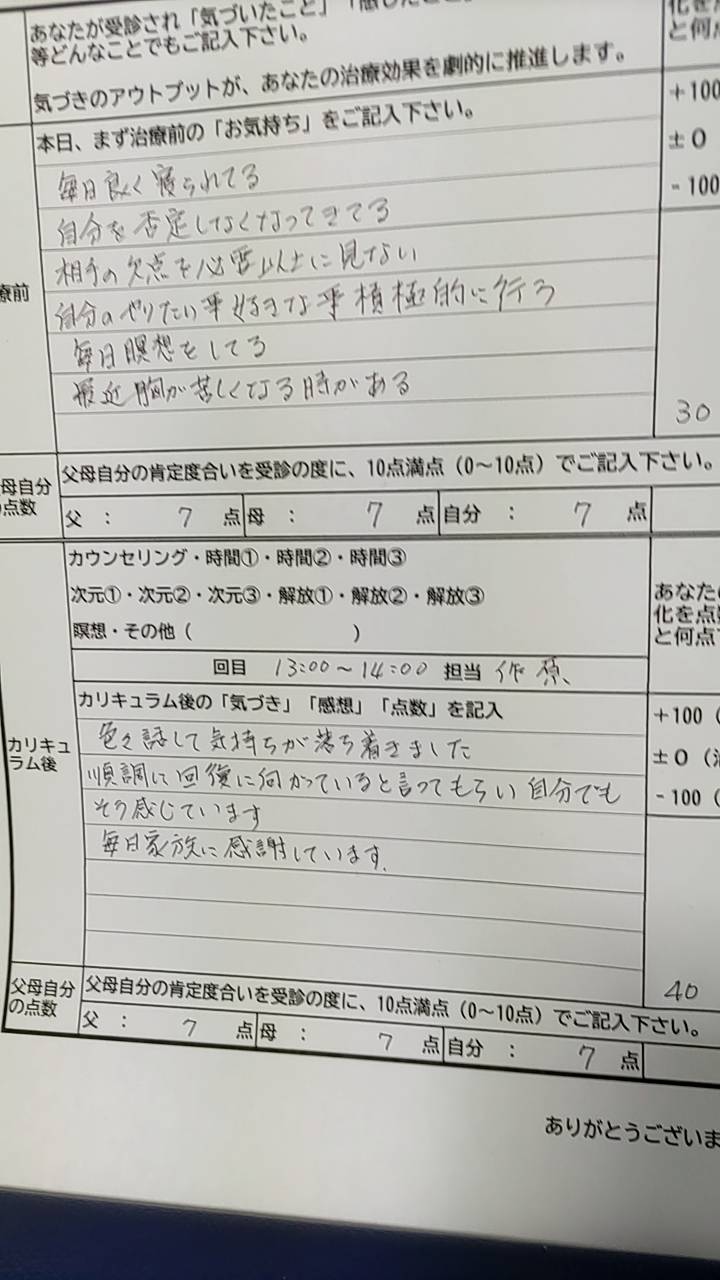 あなたが受診され「気づいたこと」「感じたこと
等どんなことでもご記入下さい。
気づきのアウトプットが、あなたの治療効果を劇的に推進します。
化を
と何点
本日、まず治療前の「お気持ち」をご記入下さい。
+100
±0
-100
療前
毎日良く寝られてる
自分を否定しなくなってきてる
相手の欠点を必要以上に見ない
自分のやりたい事好きな事積極的に行う
毎日瞑想をしてる
最近胸が苦しくなる時がある
30
母自分
点数
父母自分の肯定度合いを受診の度に、10点満点(0〜10点)でご記入下さい。
父 : 7 点 母 : 7 点 自分 : 7 点
カウンセリング・時間①・時間②・時間③
次元①・次元②・次元③・解放①・解放②・解放③
瞑想・その他( )
あなたの
化を点数
と何点
回目 13:00〜14:00 担当 作原
カリキュラム後の「気づき」「感想」「点数」を記入
+100(
±0(
-100(
カリキュ
ラム後
色々話して気持ちが落ち着きました
順調に回復に向かっていると言ってもらい自分でも
そう感じています
毎日家族に感謝しています.
40
父母自分
の点数
父母自分の肯定度合いを受診の度に、10点満点(0〜10点)でご記入下さい。
父 : 7 点 母 : 7 点 自分 : 7 点
ありがとうございま